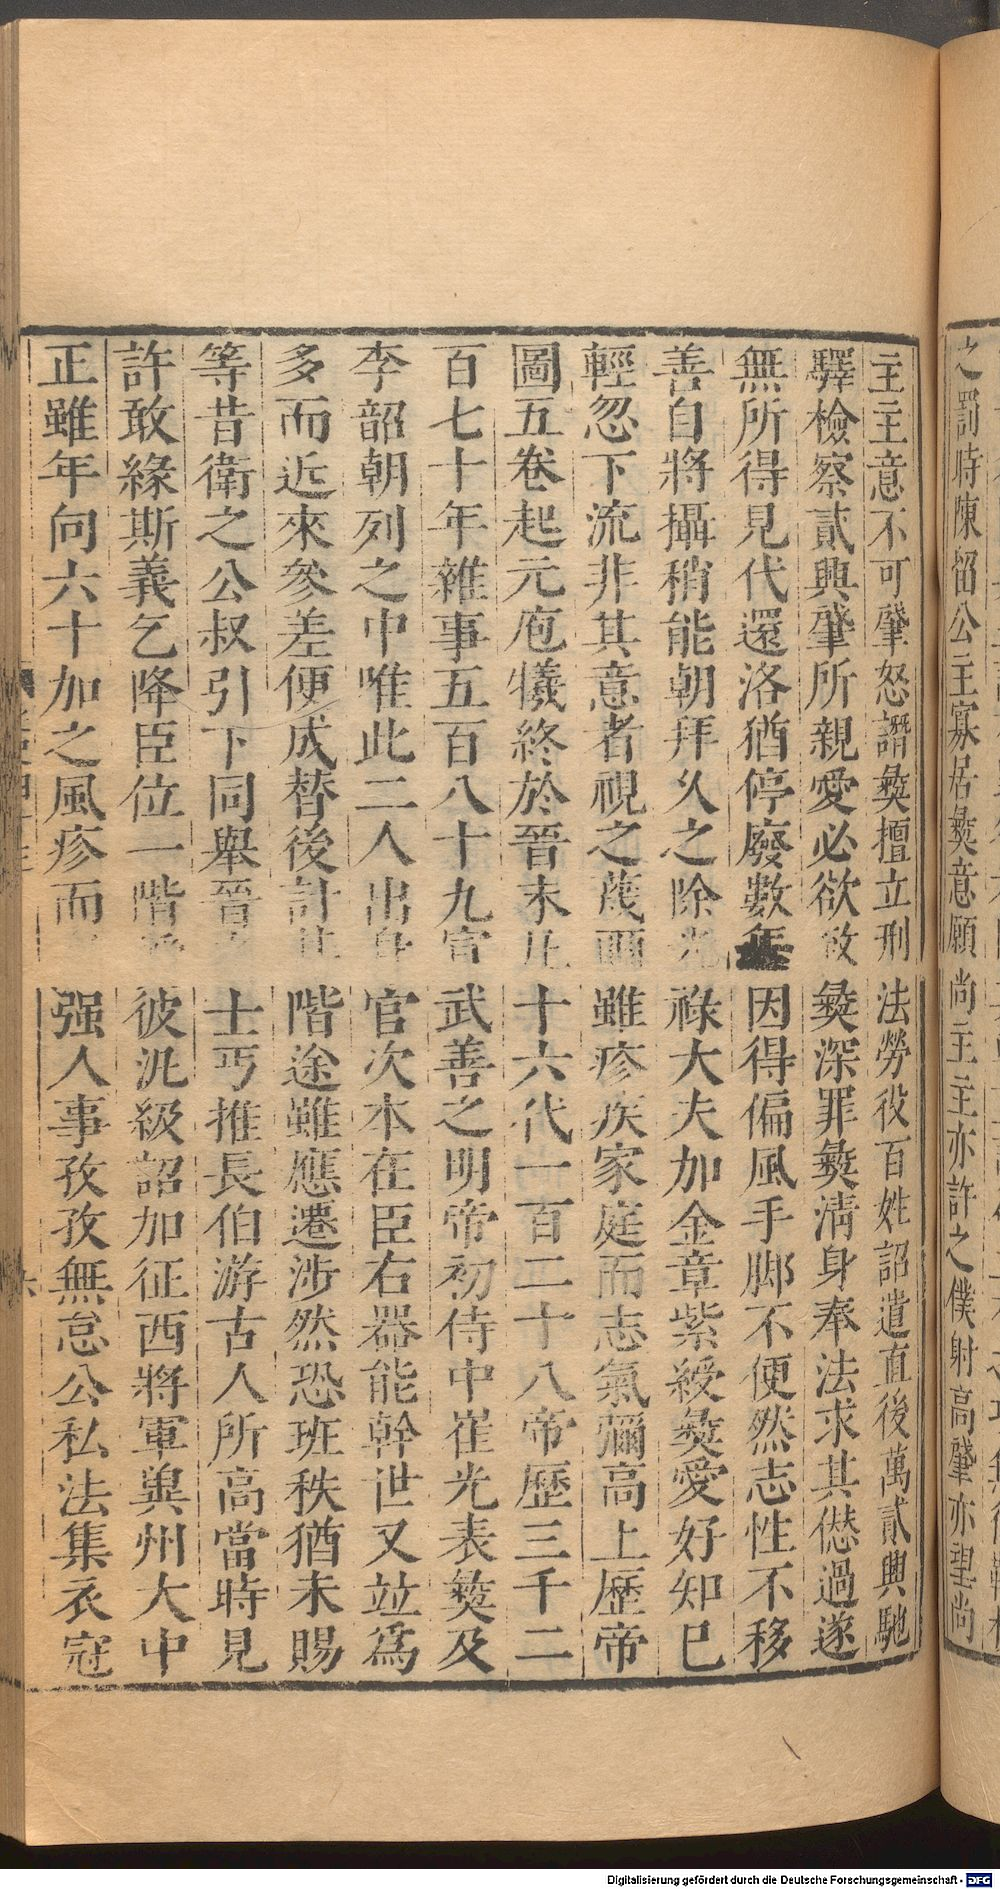 之罰時陳留公主寡居彝意願尚主主亦許之僕射高肇亦望尚
主主意不可肇怒譖彝擅立刑法勞役百姓詔遣直後萬貳興馳
驛檢察貳興肇所親愛必欲致彝深罪彝清身奉法求其僽過遂
無所得見代還洛猶停廢數年因得偏風手脚不便然志性不移
善自將攝稍能朝拜久之除光祿大夫加金章紫綬彝愛好知己
輕忽下流非其意者視之蔑爾雖疹疾家庭而志氣彌高上歷帝
圖五卷起元庖犧終於晉末凡十六代一百二十八帝歷三千二
百七十年雜事五百八十九宣武善之明帝初侍中崔光表彝及
李韶朝列之中唯此二人出身官次本在臣右器能幹世又竝爲
多而近來參差便成替後計其階途雖應遷涉然恐班秩猶未賜
等昔衛之公叔引下同舉晉士丐推長伯游古人所高當時見
許敢緣斯義乞降臣位一階彼汎級詔加征西將軍兾州大中
正雖年向六十加之風疹而强人事孜孜無怠公私法集衣冠
Digitalisierung gefördert durch die Deutsche Forschungsgemeinschaft - DFG